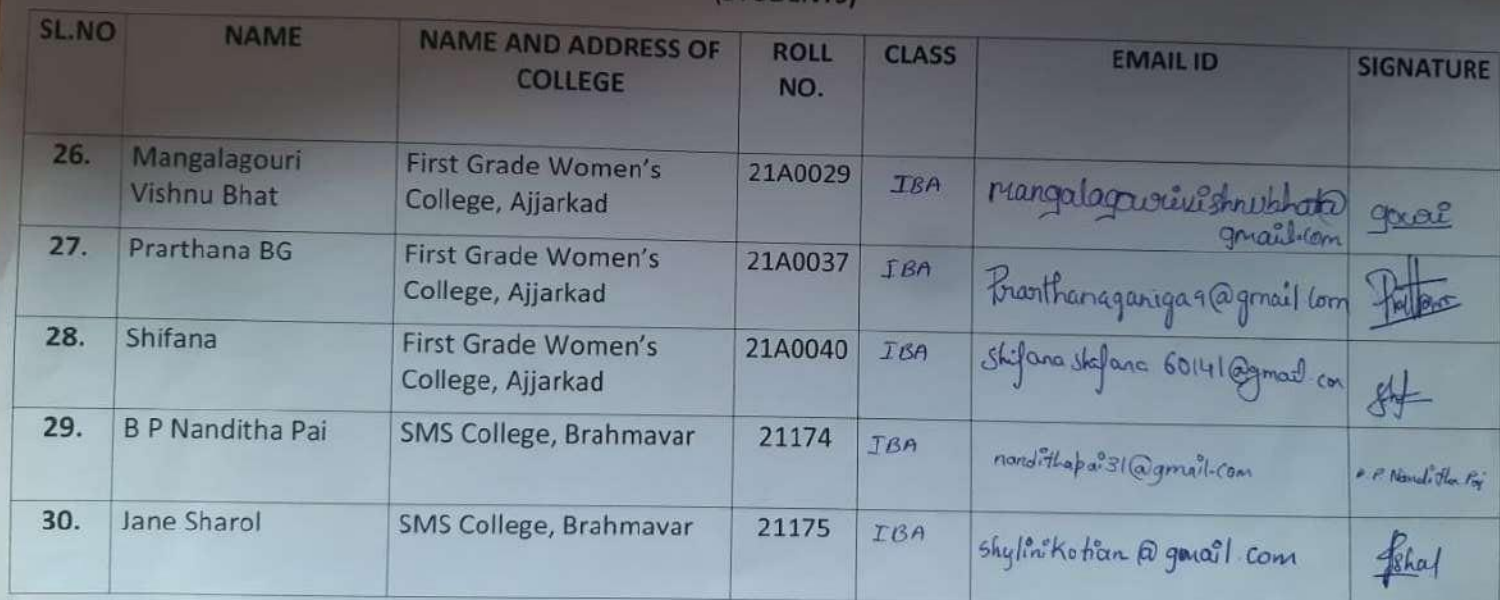 SL.NO NAME NAME AND ADDRESS OF COLLEGE ROLL NO. CLASS EMAIL ID SIGNATURE
26. Mangalagouri Vishnu Bhat First Grade Women's College, Ajjarkad 21A0029 IBA mangalagourivishnubhat@gmail.com gouri
27. Prarthana BG First Grade Women's College, Ajjarkad 21A0037 IBA Prarthanaganiga9@gmail.com
28. Shifana First Grade Women's College, Ajjarkad 21A0040 IBA
29. B P Nanditha Pai SMS College, Brahmavar 21174 IBA nandithapai31@gmail.com B.P Nanditha Pai
30. Jane Sharol SMS College, Brahmavar 21175 IBA shylinikotian@gmail.com